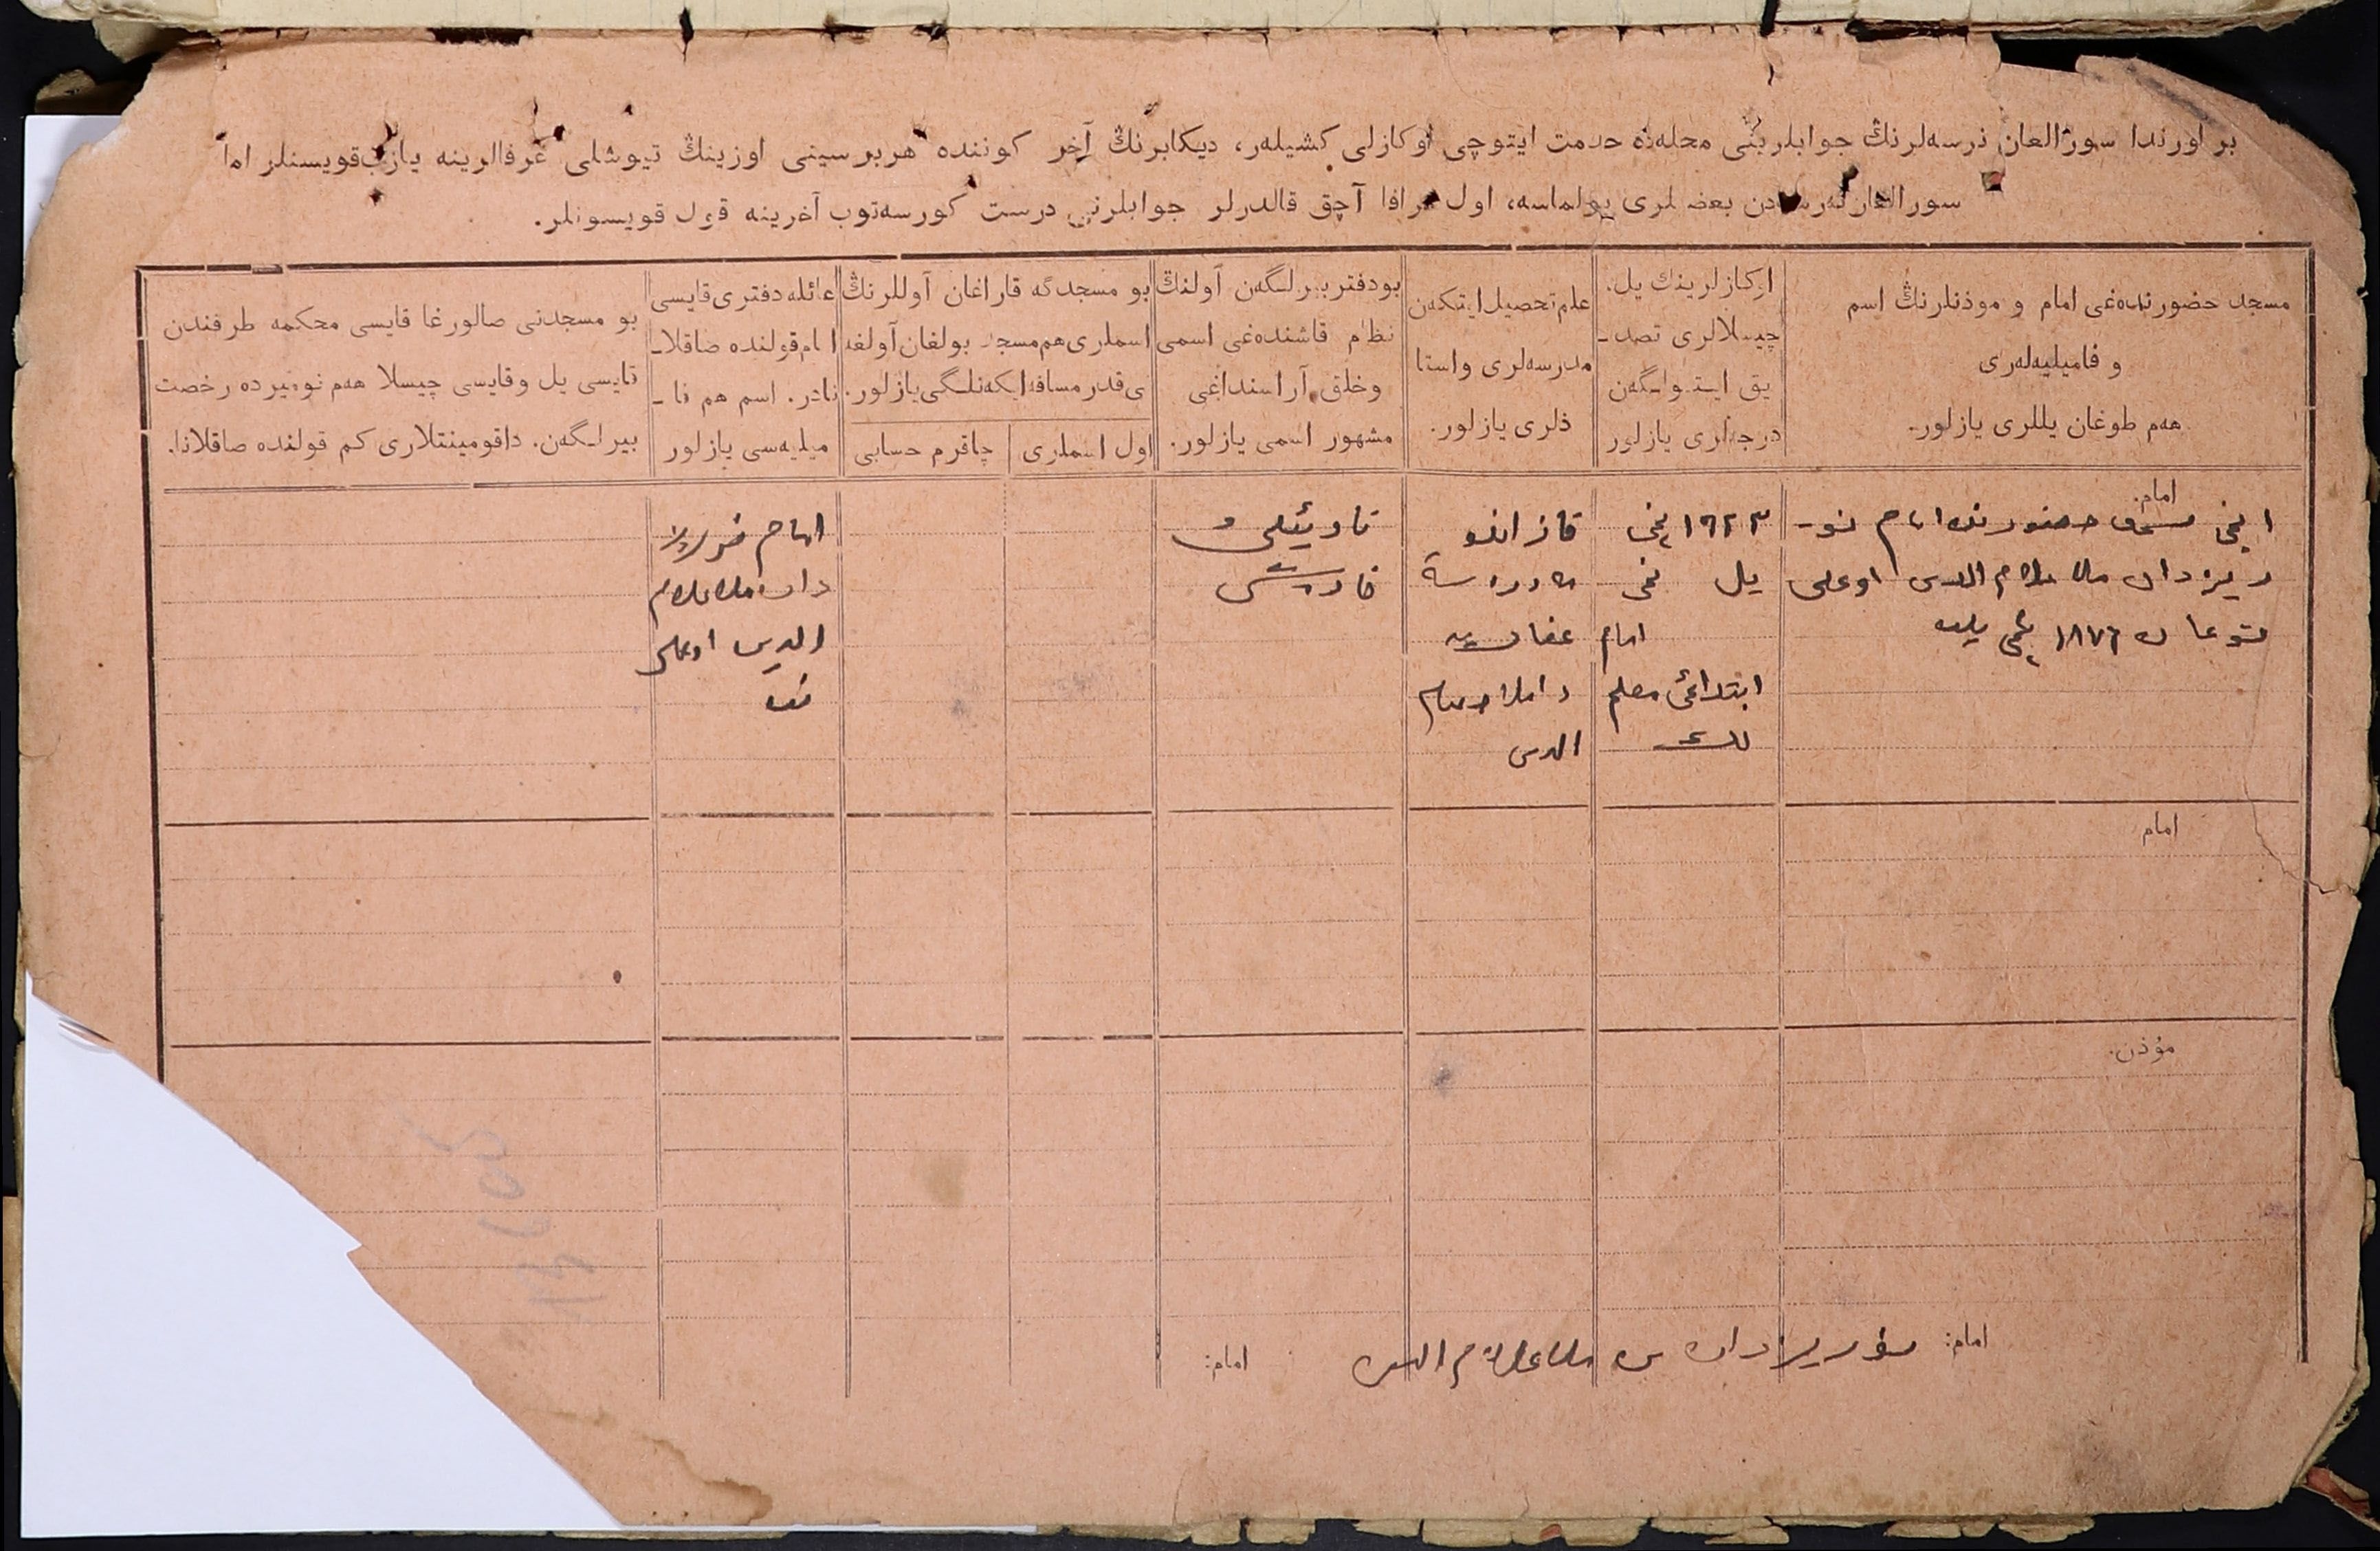 بر اورندا سورالغان نرسەلرنڭ جوابلرینی محلەدە خدمت ایتوچی اوکازلی کشیلەر، دیکابرنڭ آخر کوننده هربر سینی اوزینڭ تیوشلی غرفالرینه یازب قویسنلر اما
سورالغان نەرسەدن بعضلری بولماسه، اول غرافا آچق قالدرلر جوابلرنی درست کورسەتوب آخرینه قول قویسونلر.
مسجد حضورندەغی امام و موذنلرنڭ اسم
و فامیلیەلەری
هەم طوغان یللری یازلور.
اوکازلرینڭ یل،
چیسلالری تصد-
یق ایتولگەن
درجەلری یازلور
علم تحصیل ایتکەن
مدرسەلری واستا
ذلری یازلور.
بودفتر بیرلگەن آولنڭ
نظام قاشندەغی اسمی
وخلق آراسنداغی
مشهور اسمی یازلور.
بو مسجدگه قاراغان آوللرنڭ
اسملری هم مسجد بولغان آولغه
نی قدر مسافه ایکەنلگی یازلور.
اول اسملری
چاقرم حسابی
عائله دفتری قایسی
امام قولنده صاقلا-
نادر. اسم هم فا-
میلیەسی یازلور
بو مسجدنی صالورغا قایسی محکمه طرفندن
قایسی یل وقایسی چیسلا هەم نومیرده رخصت
بیرلگەن. داقومینتلاری کم قولنده صاقلانا.
امام.
انجی مسجد حضورنده امام نو-
ریزدان ملا علام الدین اوغلی
توغان ١٨٧٦ نچی یلده
١٩٢٣ نچی
یل نچی
امام
ابتدائی معلم
لك
قازاندە
مدرسة
غفاریه
داملا حسام
الدین
امام نوریز
دان ملا علام
الدین اوغلی
نده
امام
مؤذن.
امام: نوریزدان بن ملا علام الدین
امام: